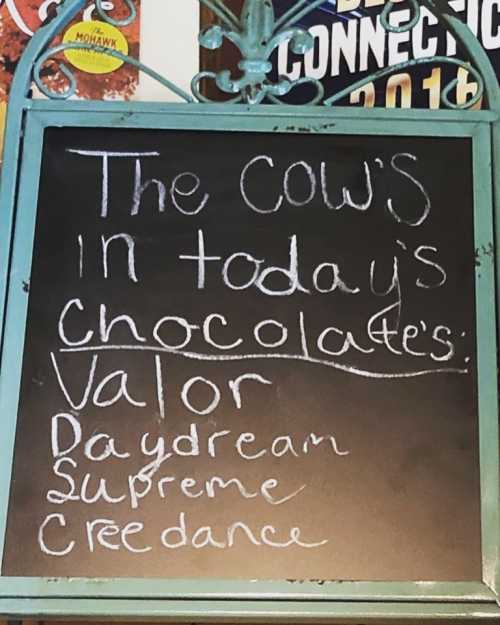 The
MOHAWK
CONNECTIC
The COW'S
in today's
Chocolate's:
Valor
Daydream
Supreme
Creedance